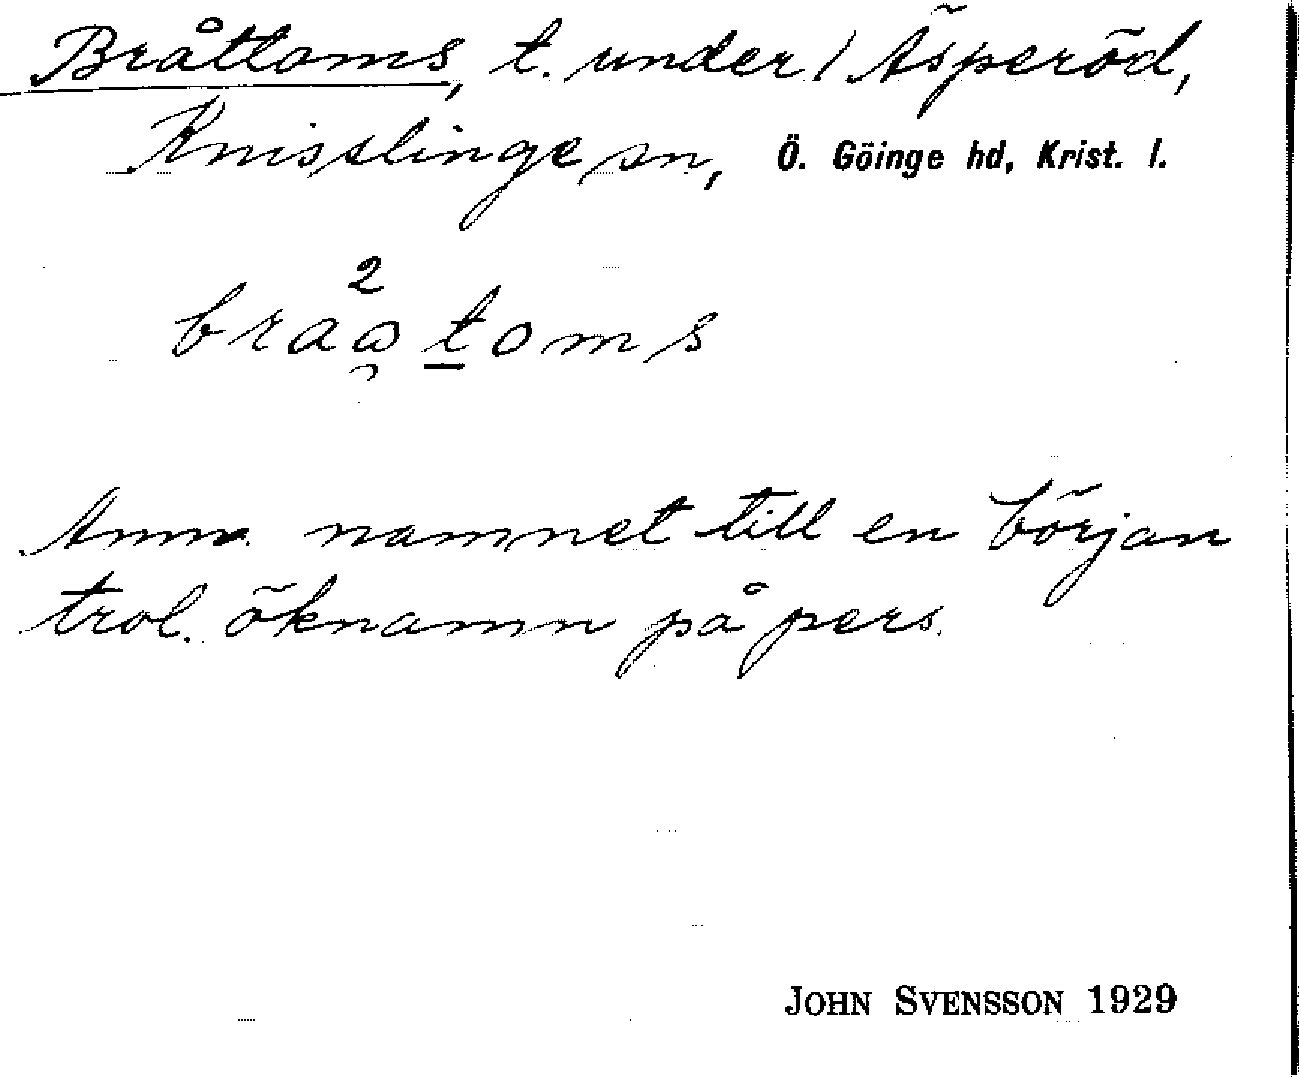 Bråttoms, t. under / Äsperöd,
Knisslinge sn, Ö. Göinge hd, Krist. l.
2
braꙍ toms
Anm. namnet till en början
trol. öknamn på pers.
JOHN SVENSSON 1929